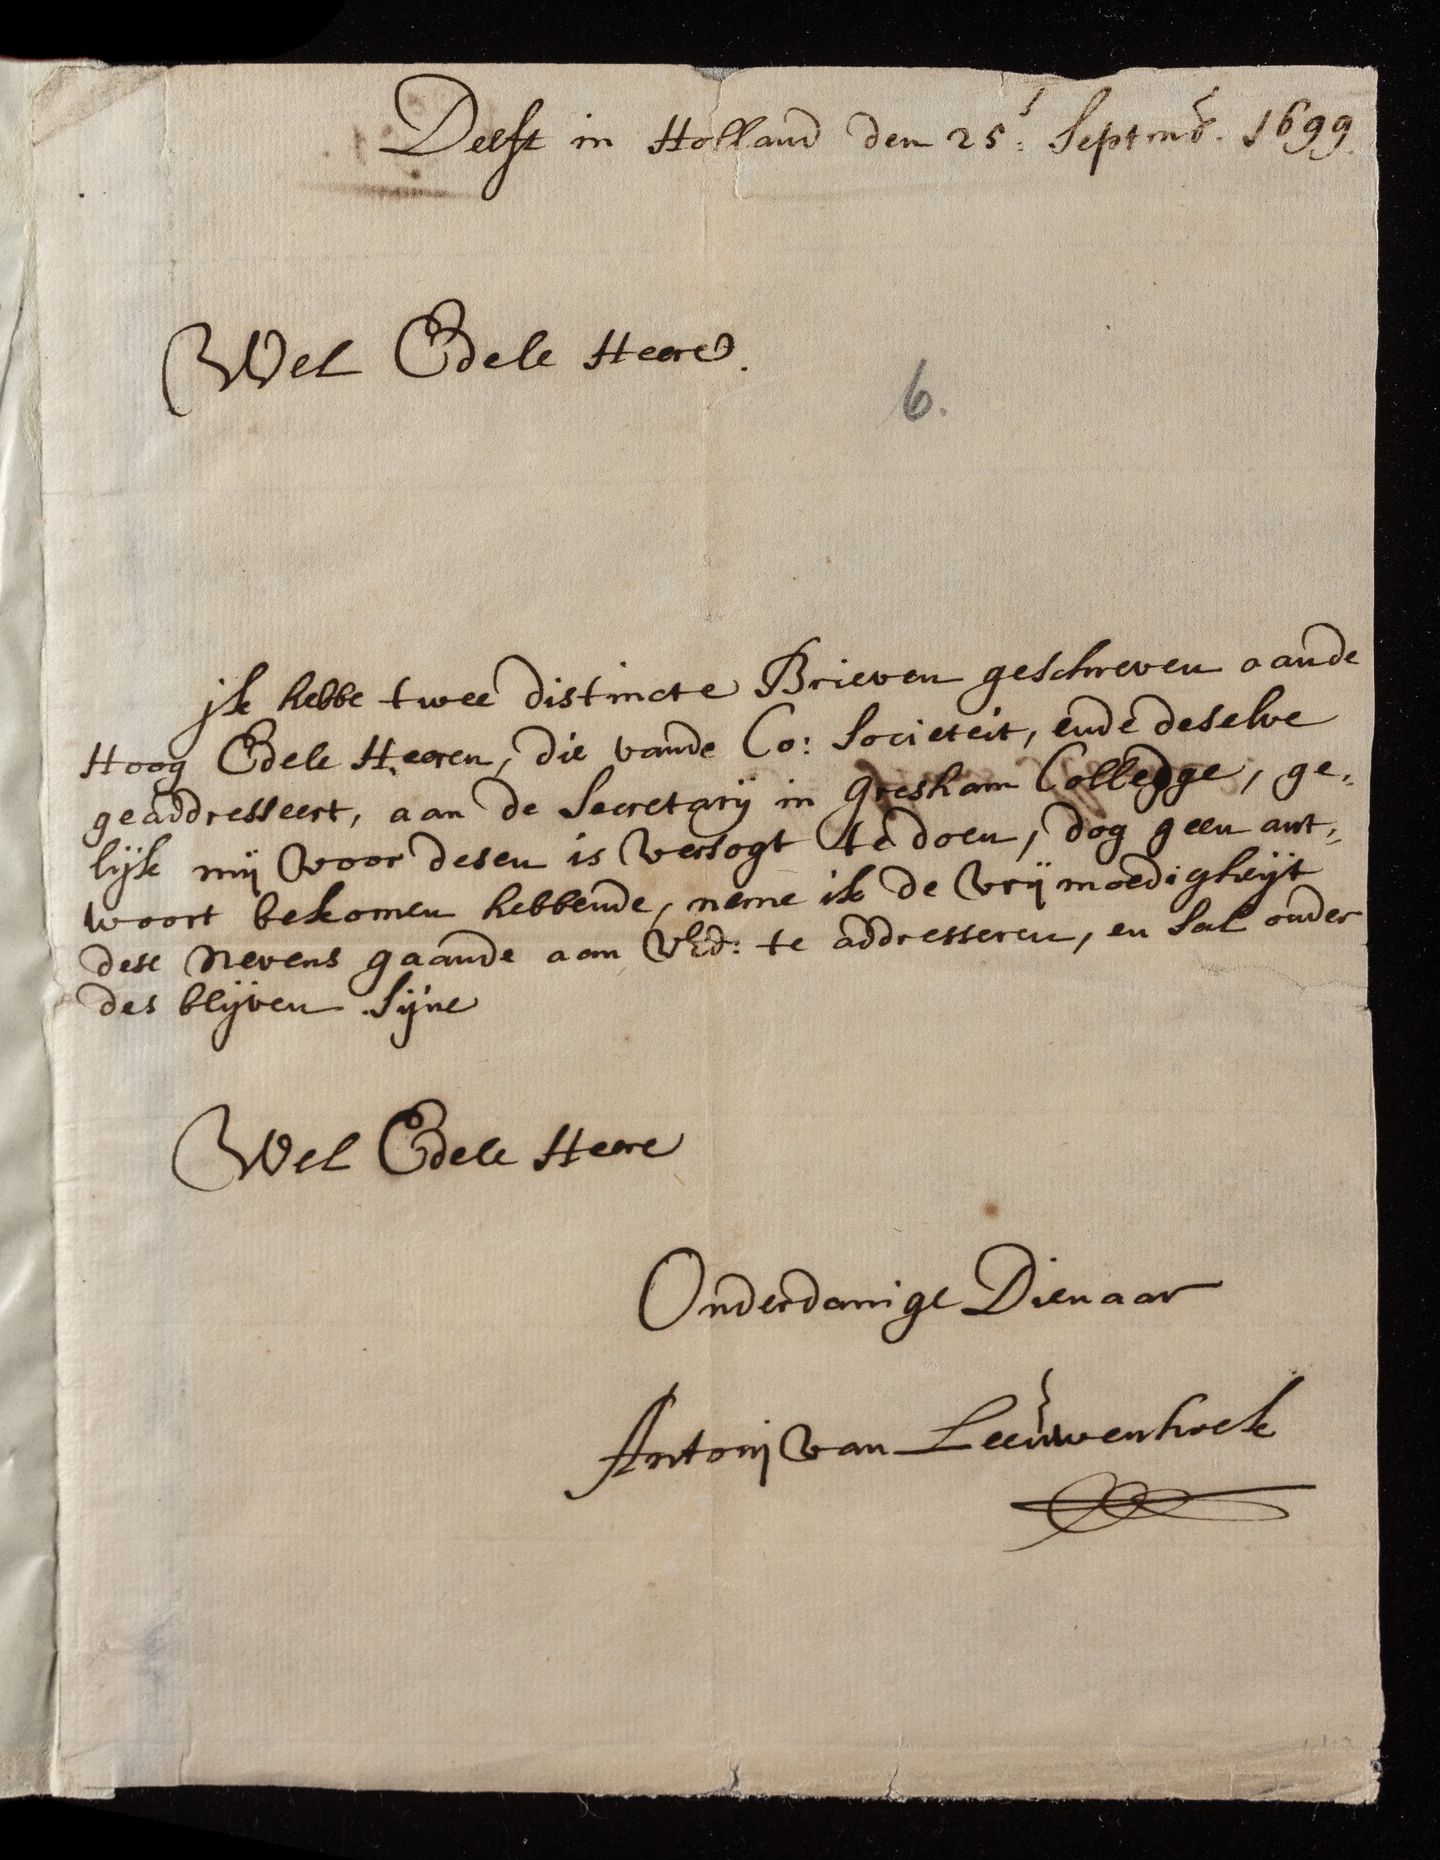 Delft in Holland den 25.e Septmbr. 1699.
Wel Edele Heere.
6.
jk hebbe twee distincte Brieven geschreven aande
Hoog Edele Heeren, die vande Co: Societeit, ende deselve
geaddresseert, aan de Secretarij in Gresham Colledge, ge-
lijk mij voor desen is versogt te doen, dog geen ant-
woort bekomen hebbende, neme ik de vrijmoedigheijt
dese nevens gaande aan UEd: te addresseren, en sal onder
des blijven Sijne
Wel Edele Heere
Onderdanige Dienaar
Antonij van Leeuwenhoek